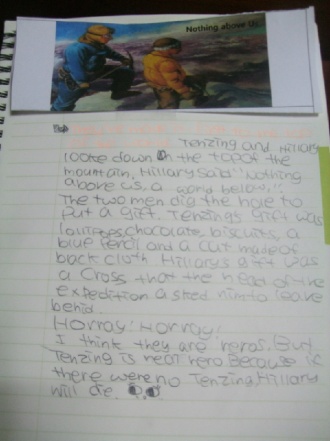 Nothing above Us
Tenzing and Hillary
looke down on the top of the
mountain, Hillary said "Nothing
above us, a world below."
The two men dig the hole to
put a gift. Tenzing's gift was
lollipops chocolate, biscuits, a
blue pencil and a cat made of
back cloth Hillary's gift was
a cross that the head of the
expedition asked him to leave
behind.
Horray! Horray!
I think they are heros. But
Tenzing is real hero Because if
there were no Tenzing, Hillary
will die